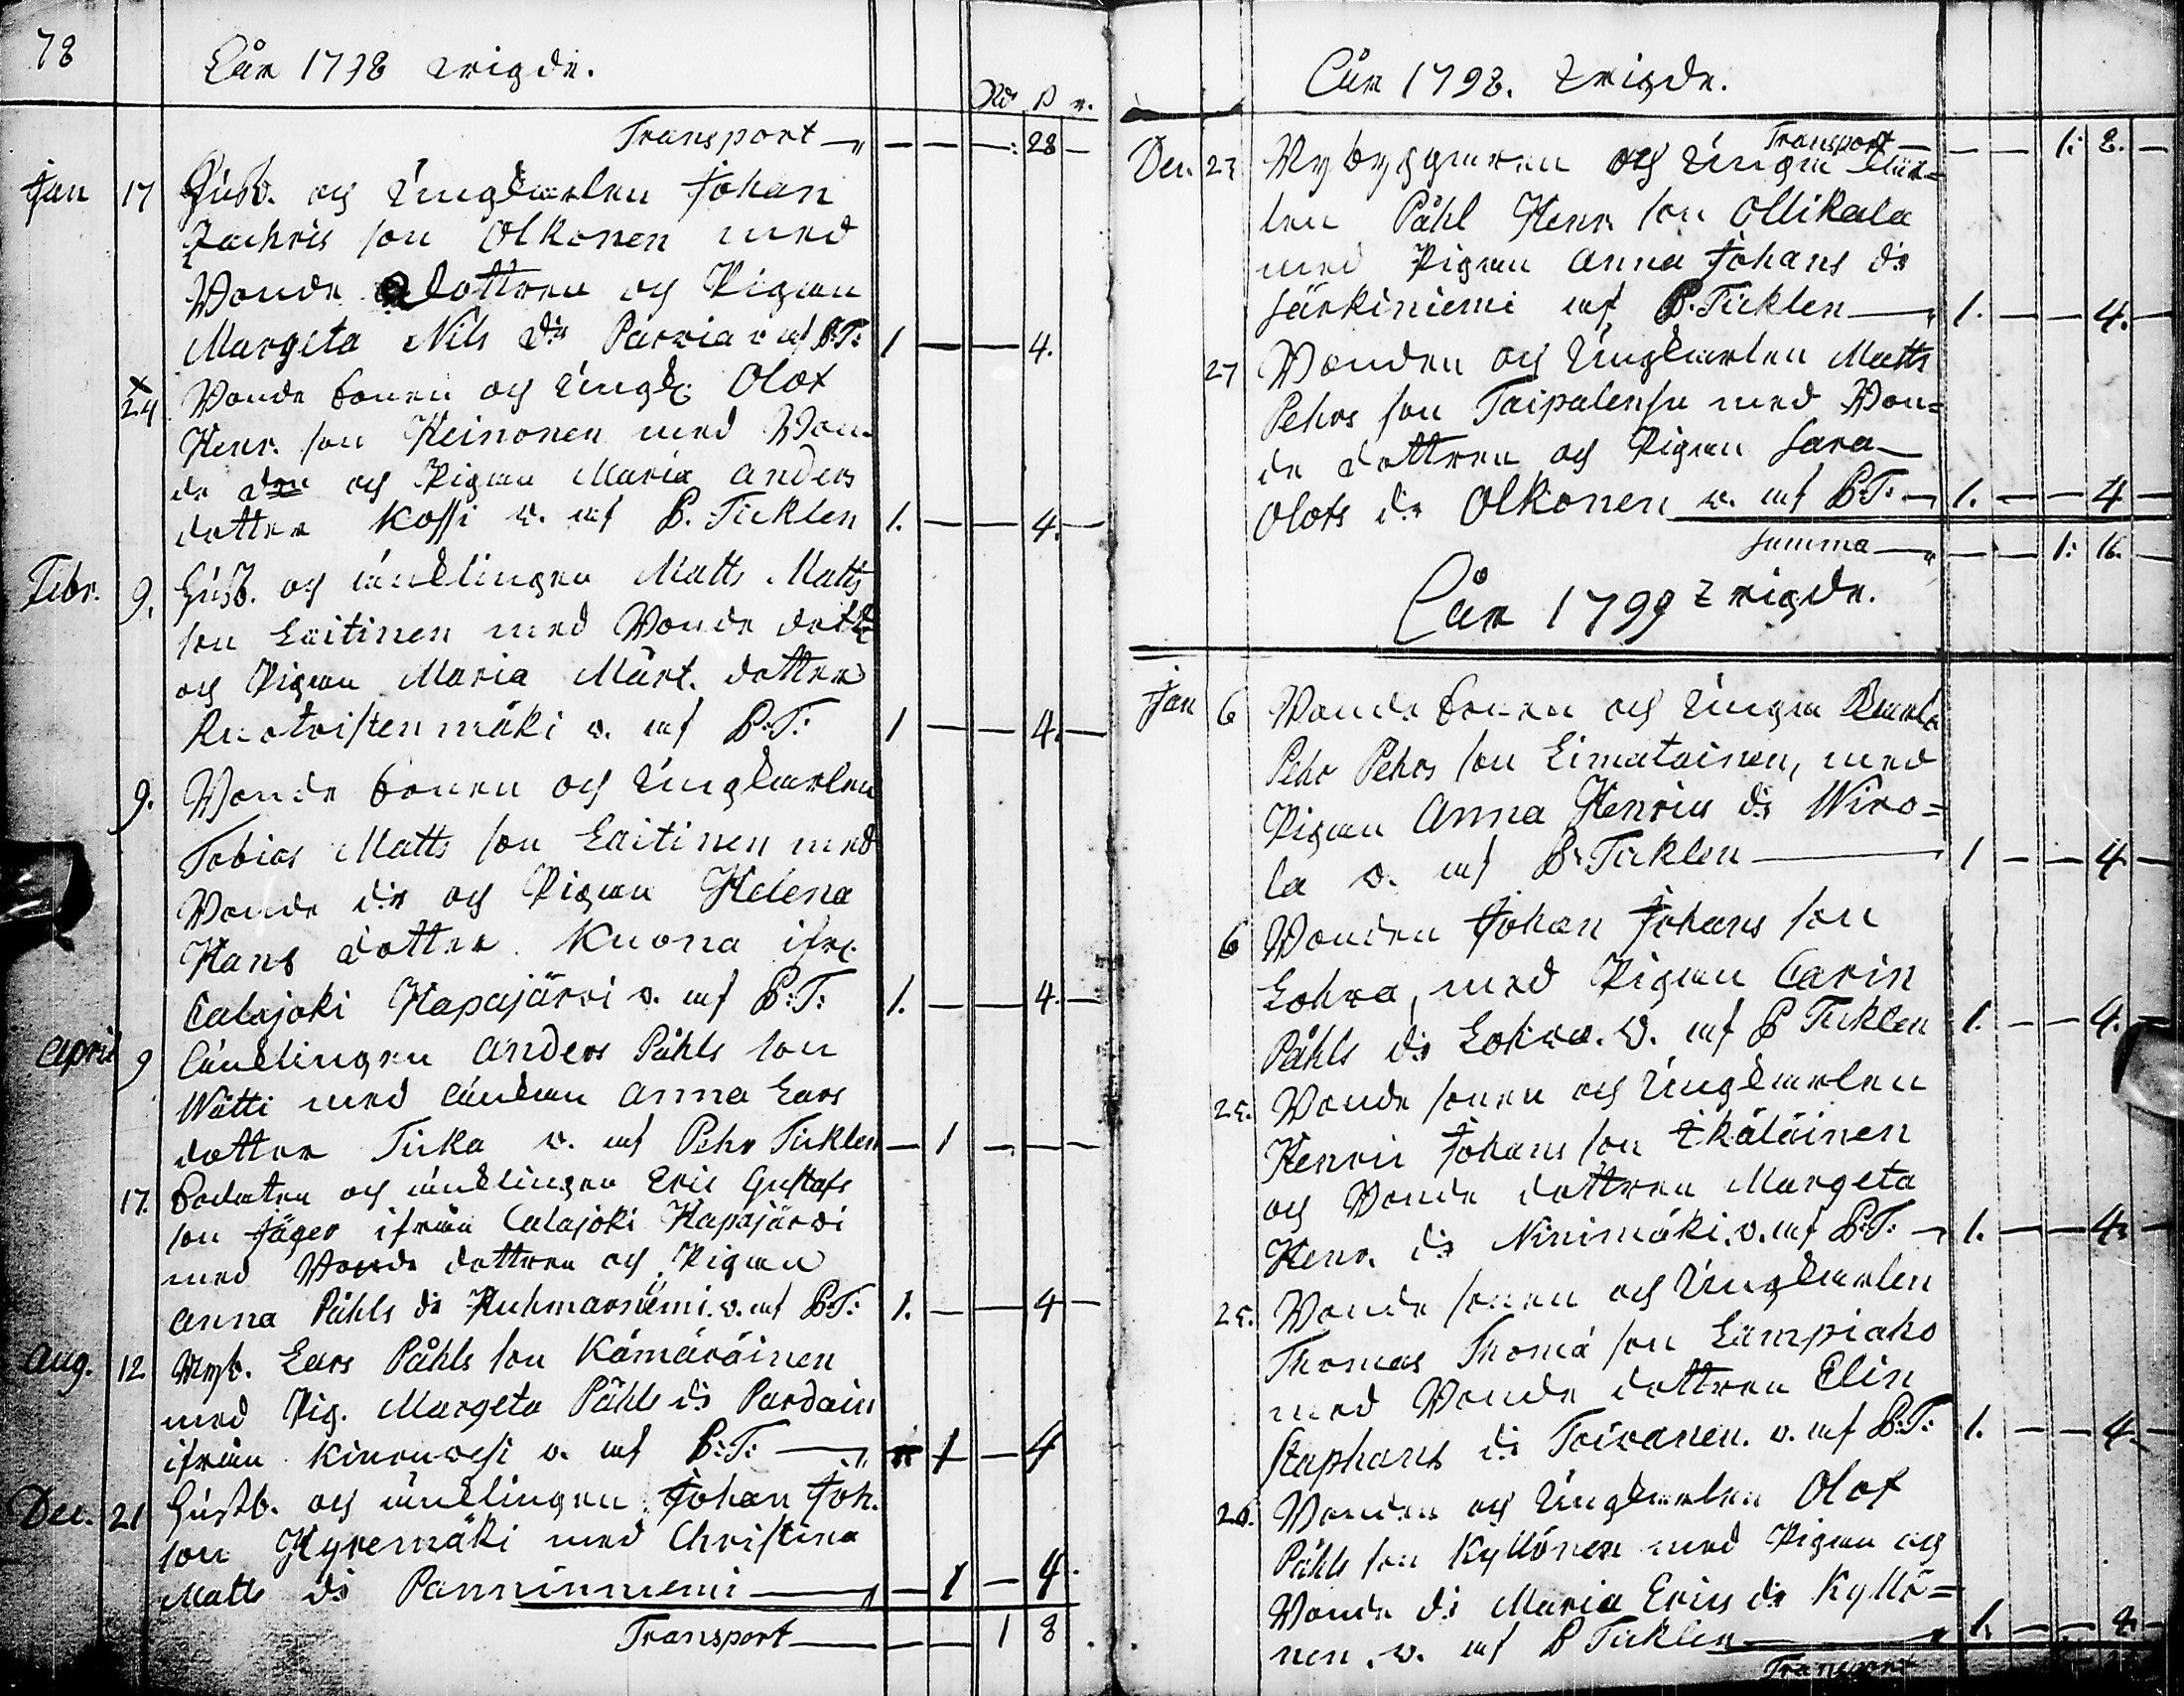 78
Åår 1798 wigde.
Rd ß r.
Transport — — — 28 —
Jan 17 Husb. och Ungkarlen Johan
Zachris son Olkonen med
Bonde dottren och Pigan
Margeta Nils dr Parviar af P:T: 1 — — 4.
24 Bonde sonen och Ungk. Olof
Henr. son Heinonen med Bon
de dren och Pigan Maria Anders
dotter Kossi v. af P. Ticklen 1. — — 4. —
Febr. 9. Husb. och änklingen Matts Matts
son Laitinen med Bonde dott
och Pigan Maria Mårt. dotter
v. af P:T: 1 — — 4. —
9. Bonde sonen och Ungkarlen
Tobias Matts son Laitinen med
Bonde dr och Pigan Helena
Hans dotter Kuona ifr.
Calajoki Hapajärvi v. af P:T: 1. — — 4. —
April 9 änklingen Anders Påhls son
Wätti med änkan Anna Lars
dotter Ticka v. af Pehr Ticklen — 1 — — —
17. Soldaten och änklingen Eric Gustafs
son Jäger ifrån Calajoki Hapajärvi
med Bonde dottren och Pigan
Anna Påhls dr Ruhmarniemi. v. af P:T: 1. — — 4 —
Aug. 12 Nyb. Lars Påhls son Kämäräinen
med Pig. Margeta Påhls dr Pardain
ifrån v. af P:T: — 1 — 4
Dec. 21 Husb. och änklingen Johan Joh.
son Hyvemäki med Christina
Matts dr Panninniemi — — 1 — 4.
Transport — — — 1 8
Åår 1798. wigde.
Transport — — — 1: 8. —
Dec. 23 Nybyggaren och Unga Kar=
len Påhl Henr. son Ollikala
med Pigan Anna Johans dr
Särkiniemi af P. Ticklen — 1. — — 4. —
27 Bonden och Ungkarlen Matts
Pehrs son Taipalensu med Bon=
de dottren och Pigan Sara
Olofs dr Olkonen v. af P:T: — 1. — — 4 —
Summa — — — 1: 16. —
Åår 1799 wigde.
Jan 6 Bonde sonen och Unga Karln
Pehr Pehrs son Limatainen, med
Pigan Anna Henrics dr Wiro=
la v. af P. Ticklen — 1 — — 4 —
6 Bonden Johan Johans son
Lohwa, med Pigan Carin
Påhls dr Lohwa. v. af P Ticklen 1. — — 4. —
25. Bonde sonen och Ungkarlen
Henric Johans son Ikäläinen
och Bonde dottren Margeta
Henr. dr Ninimäki. v. af P:T: — 1. — — 4. —
25. Bonde sonen och Ungkarlen
Thomas Thomæ son Lampiaho
med Bonde dottren Elin
Staphans dr Toivanen. v. af P:T: 1. — — 4. —
26. Bonden och Ungkarlen Olof
Påhls son Kyllönen med Pigan och
Bonde dr Maria Erics dr Kyllö=
nen. v. af P Ticklen — 1. — — 4. —
Transport